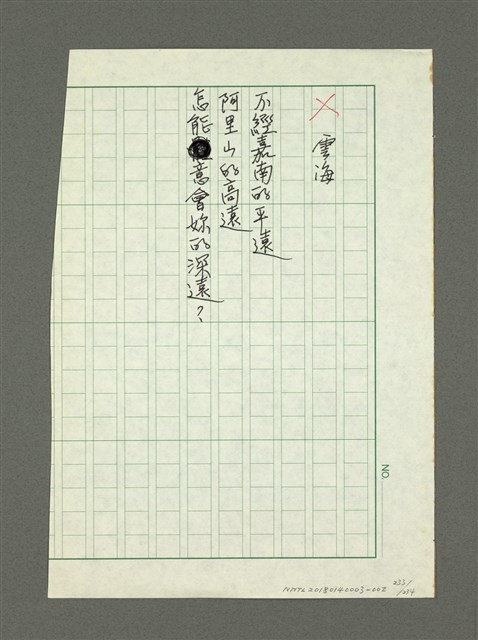 雲海
不經嘉南的平遠
阿里山的高遠
怎能意會妳的深遠？
NO.
233/234
NMTL20180140003-002